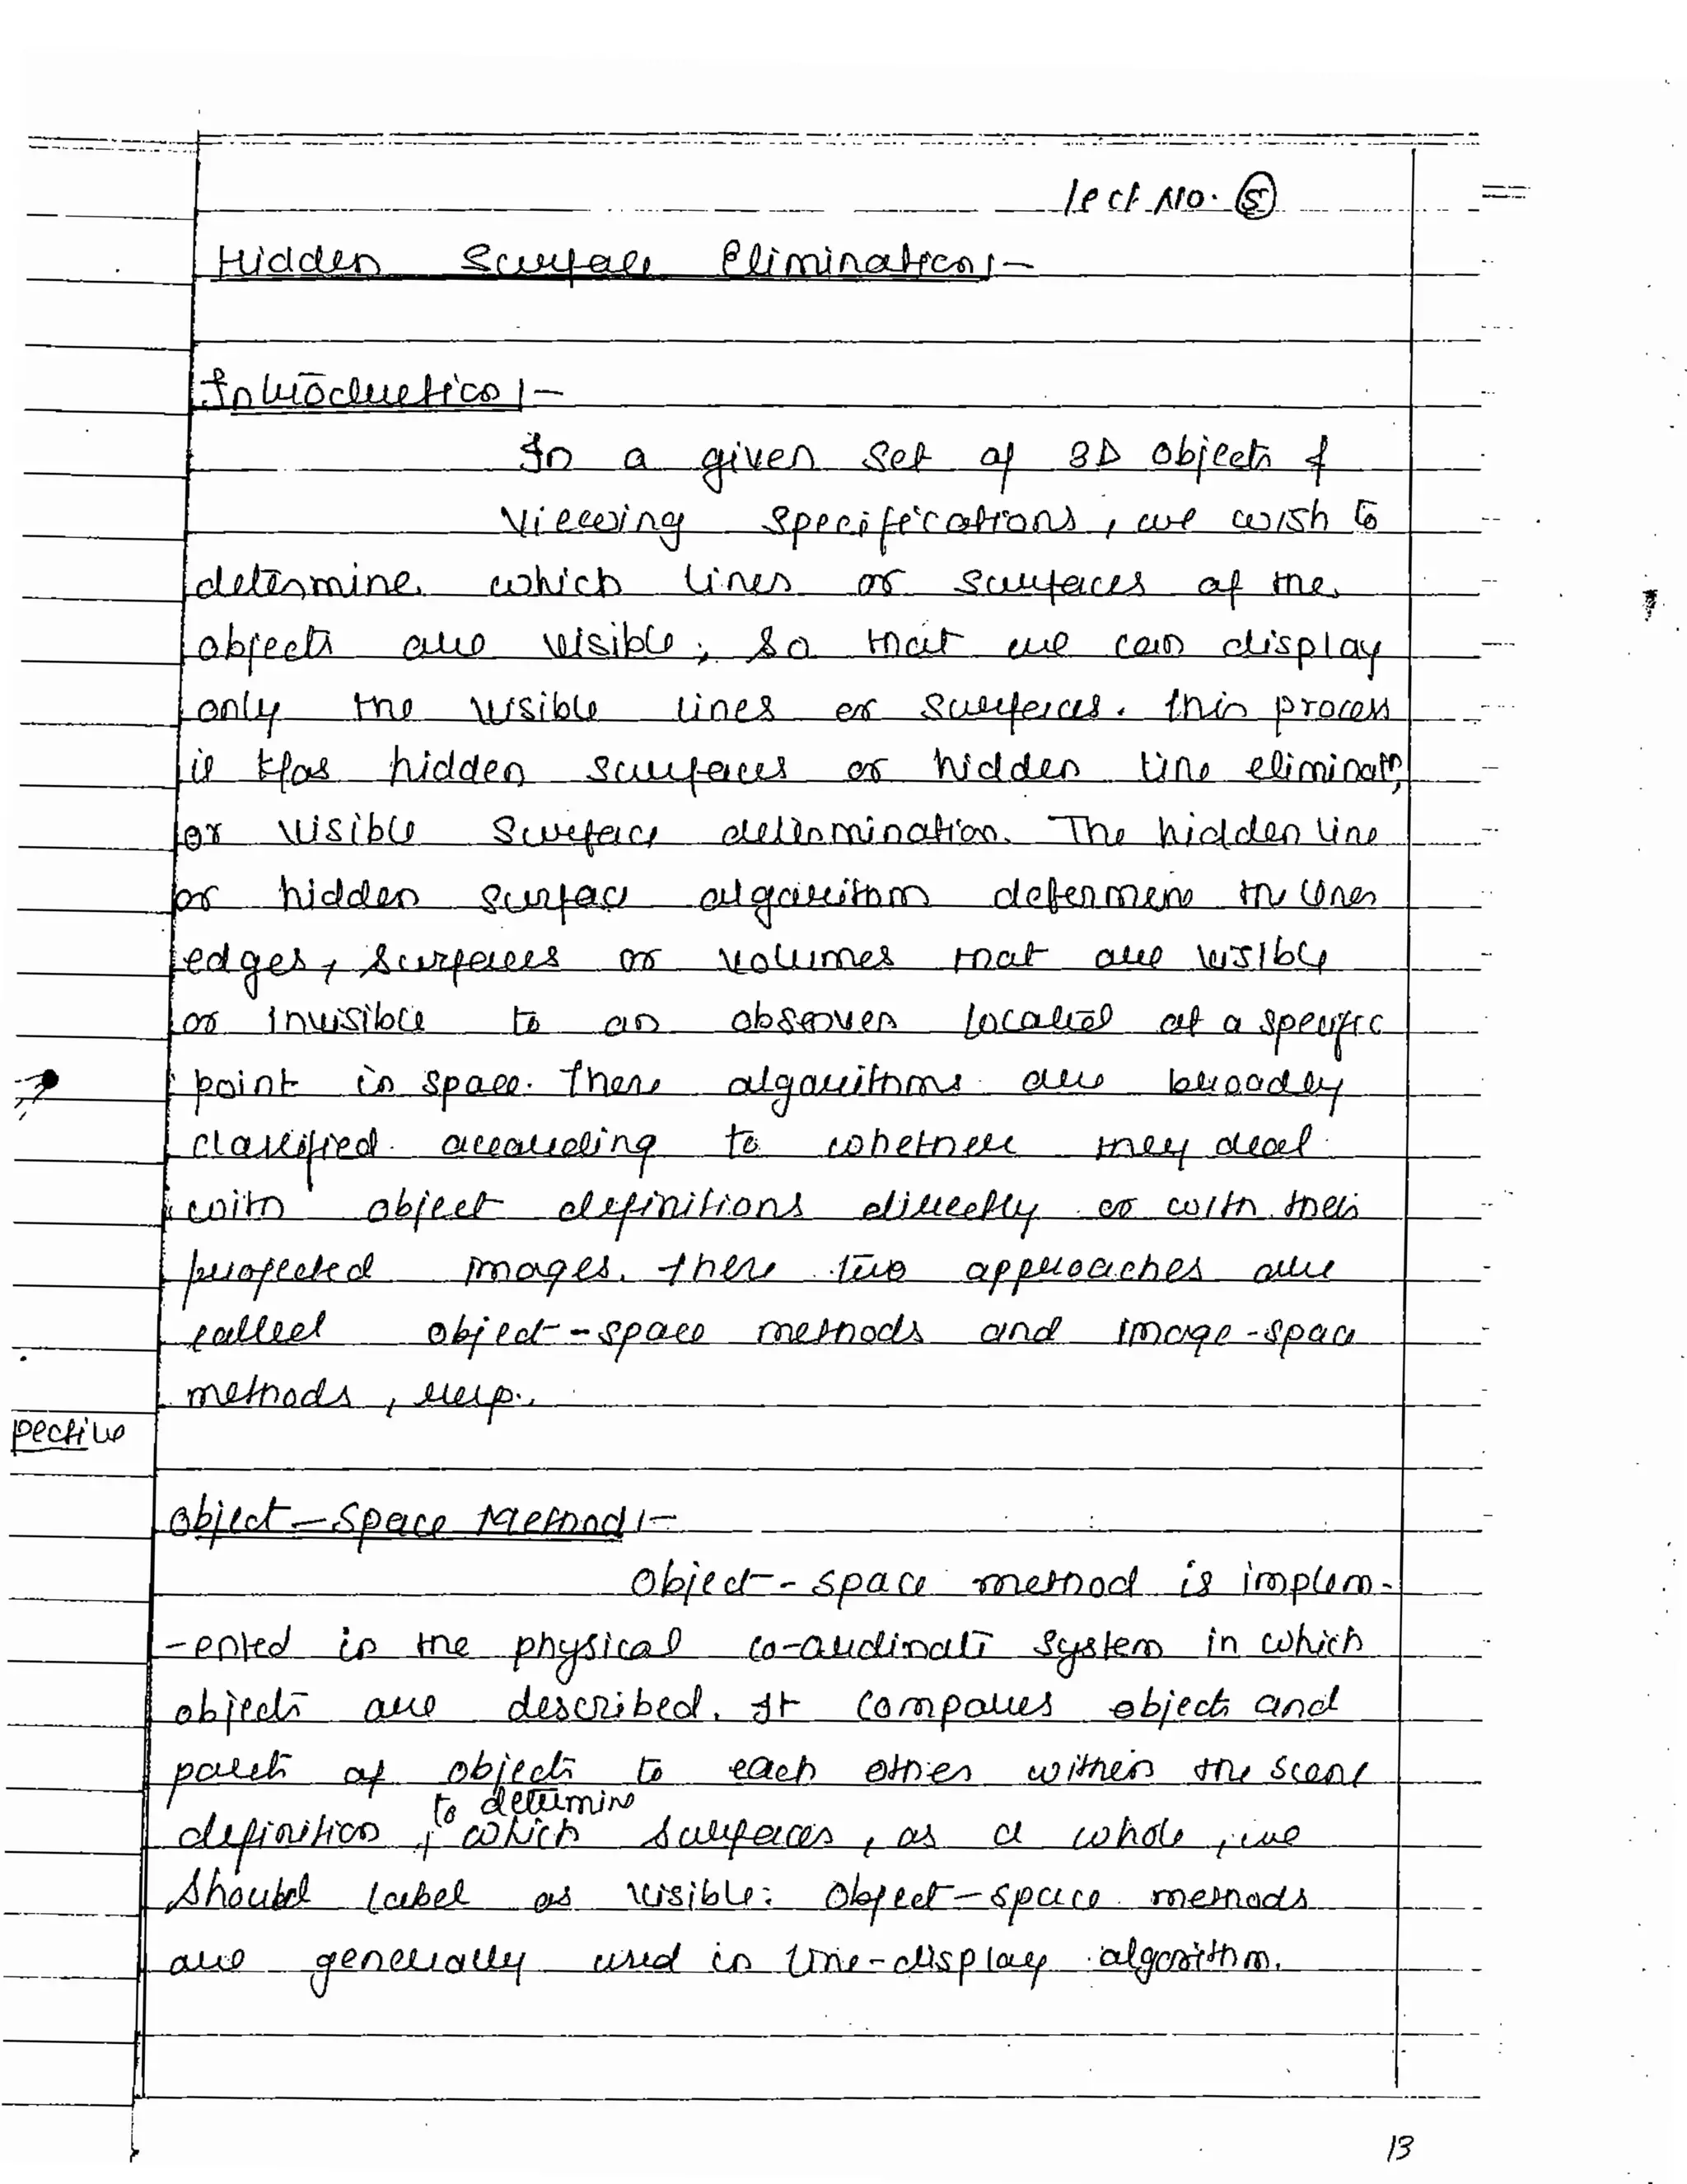 Lect No. 5
Hidden Surface Elimination :-
Introduction :-
In a given set of 3D objects &
viewing specifications, we wish to
determine which lines or surfaces of the
objects are visible, so that we can display
only the visible lines or surfaces. This process
is k/as hidden surfaces or hidden line eliminatn,
or visible surface determination. The hidden line
or hidden surface algorithm determine the lines
edges, surfaces or volumes that are visible
or invisible to an observer located at a specific
point in space. These algorithms are broadly
classified according to whether they deal
with object definitions directly or with their
projected images. These two approaches are
called object-space methods and image-space
methods, resp.
pective
Object-Space Method :-
Object-space method is implem-
-ented in the physical co-ordinate system in which
objects are described. It compares objects and
parts of objects to each other within the scene
to determine
definition, which surfaces, as a whole, we
should label as visible. Object-space methods
are generally used in line-display algorithm.
13